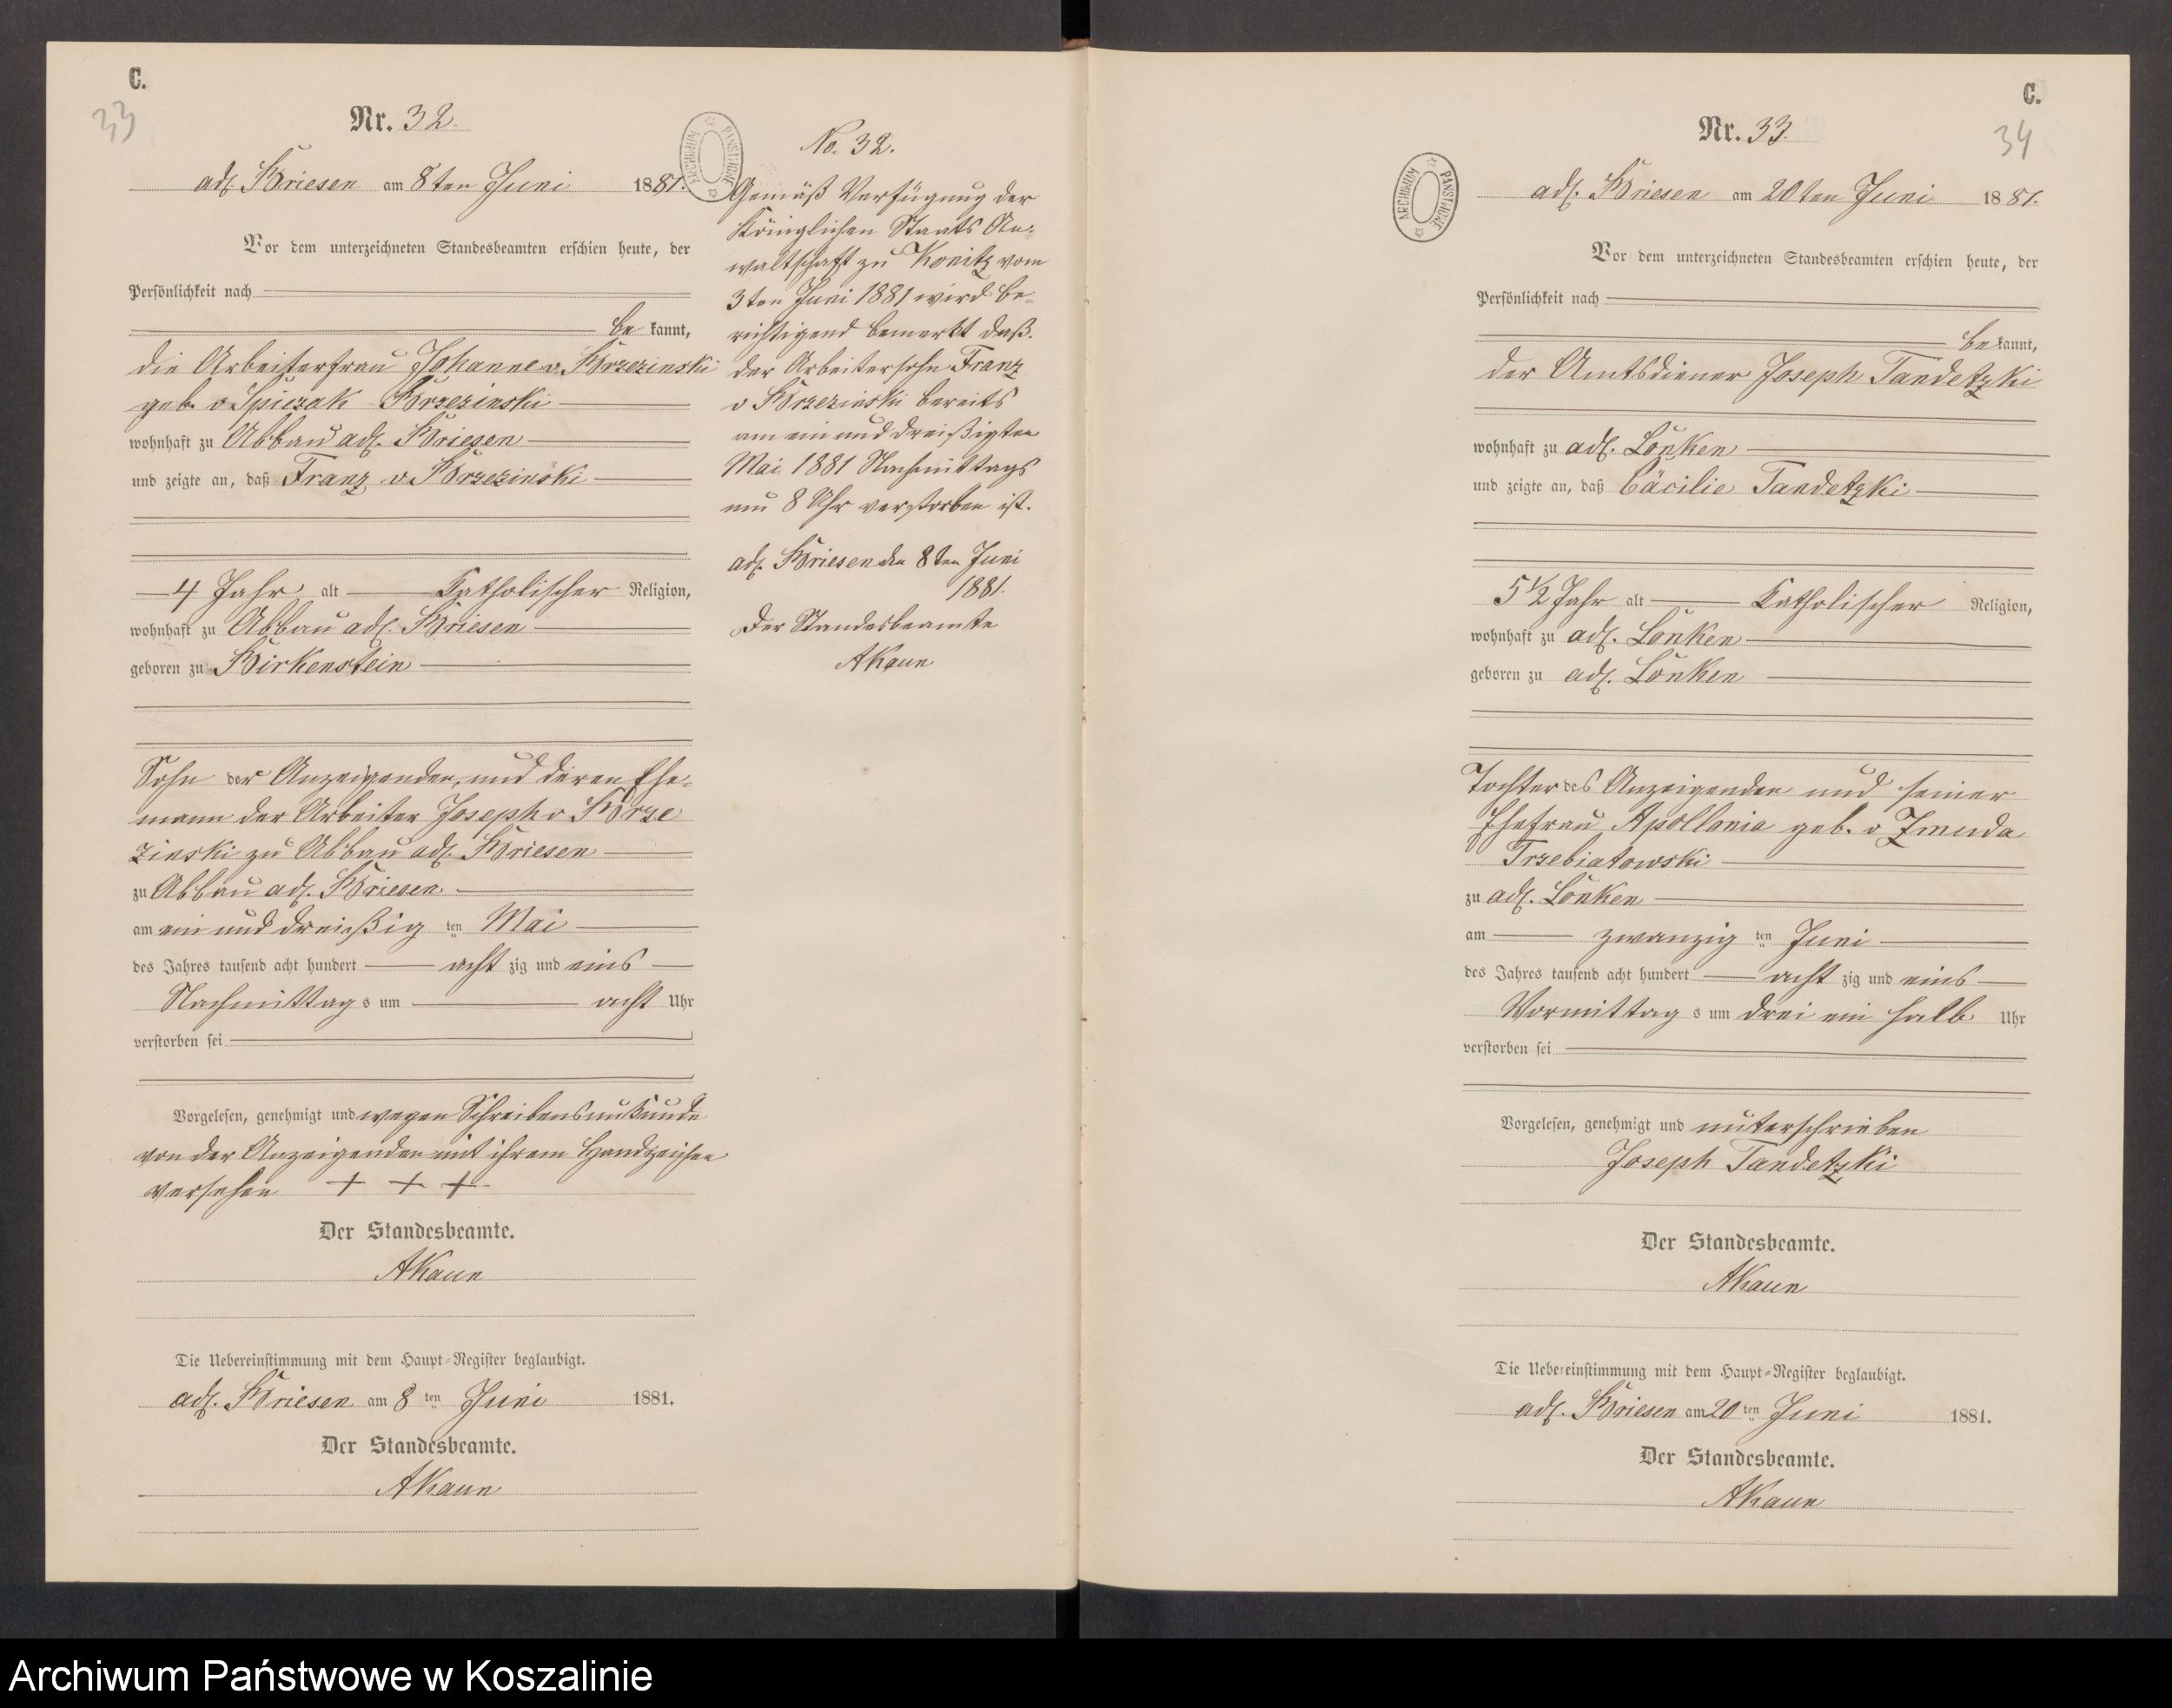 C.
33
Nr. 32.
adl. Briesen am 8ten Juni 1881.
Vor dem unterzeichneten Standesbeamten erschien heute, der
Persönlichkeit nach
be kannt,
die Arbeiterfrau Johanne v. Brzezinski
geb. v Spiczak Brzezinski
wohnhaft zu Abbau adl. Briesen
und zeigte an, daß Franz v. Brzezinski
4 Jahr alt Katholischer Religion,
wohnhaft zu Abbau adl. Briesen
geboren zu Birkenstein
Sohn der Anzeigenden, und deren Ehe-
mann der Arbeiter Joseph v Brze
zinski zu Abbau adl. Briesen
zu Abbau adl. Briesen
am ein und dreißig ten Mai
des Jahres tausend acht hundert acht zig und eins
Nachmittag s um acht Uhr
verstorben sei
Vorgelesen, genehmigt und wegen Schreibensunkunde
von der Anzeigenden mit ihrem Handzeichen
versehen + + +
Der Standesbeamte.
AKaun
Die Uebereinstimmung mit dem Haupt-Register beglaubigt.
adl. Briesen am 8 ten Juni 1881.
Der Standesbeamte.
AKaun
ARCHIWUM PAŃSTWOWE
No. 32.
Gemäß Verfügung der
Königlichen Staats An-
waltschaft zu Konitz vom
3ten Juni 1881 wird be-
richtigend bemerkt daß
der Arbeitersohn Franz
v Brzezinski bereits
am ein und dreißigten
Mai 1881 Nachmittags
um 8 Uhr verstorben ist.
adl. Briesen den 8ten Juni
1881.
Der Standesbeamte
AKaun
C.
34
Nr. 33.
ARCHIWUM PAŃSTWOWE
adl. Briesen am 20ten Juni 1881.
Vor dem unterzeichneten Standesbeamten erschien heute, der
Persönlichkeit nach
be kannt,
der Amtsdiener Joseph Tandetzki
wohnhaft zu adl. Lonken
und zeigte an, daß Cäcilie Tandetzki
5½ Jahr alt Katholischer Religion,
wohnhaft zu adl. Lonken
geboren zu adl. Lonken
Tochter des Anzeigenden und seiner
Ehefrau Apollonia geb. v Zmuda
Trzebiatowski
zu adl. Lonken
am zwanzig ten Juni
des Jahres tausend acht hundert acht zig und eins
Vormittag s um drei ein halb Uhr
verstorben sei
Vorgelesen, genehmigt und unterschrieben
Joseph Tandetzki
Der Standesbeamte.
AKaun
Die Uebereinstimmung mit dem Haupt-Register beglaubigt.
adl. Briesen am 20 ten Juni 1881.
Der Standesbeamte.
AKaun
Archiwum Państwowe w Koszalinie